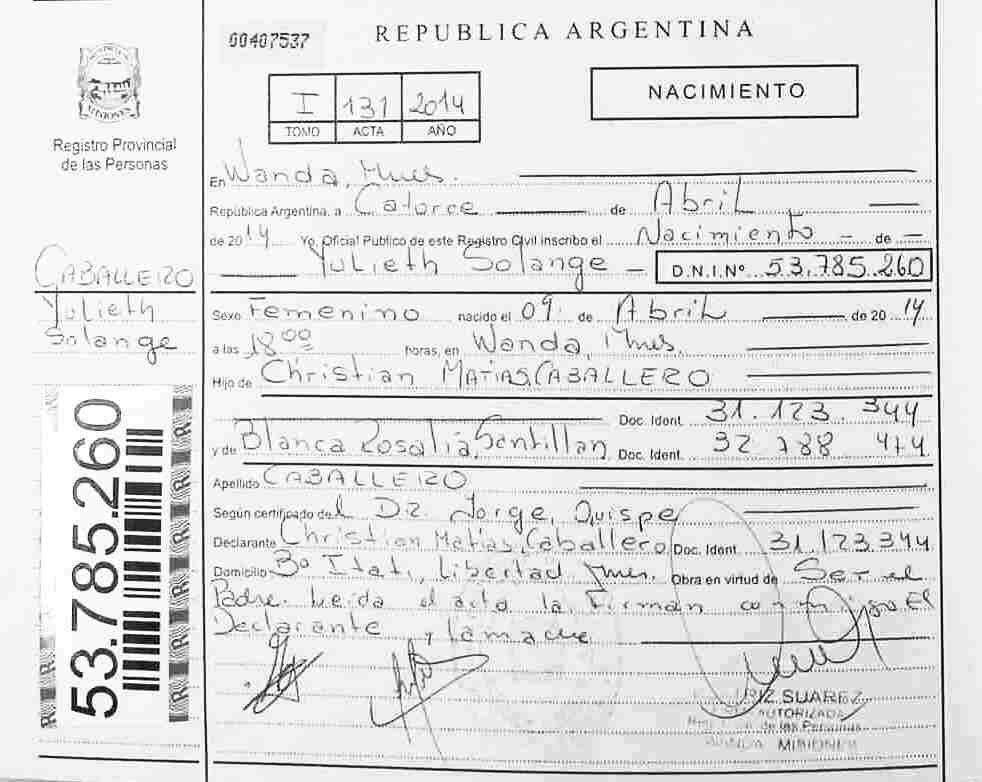 00407537
REPUBLICA ARGENTINA
PROVINCIA
MISIONES
Registro Provincial
de las Personas
I 131 2014
TOMO ACTA AÑO
NACIMIENTO
En Wanda, Mnes.
República Argentina, a Catorce de Abril
de 2014 Yo, Oficial Público de este Registro Civil inscribo el Nacimiento - de -
Yulieth Solange - D.N.I.Nº 53.785.260
CABALLERO
Yulieth
Solange
Sexo Femenino nacido el 09 de Abril de 2014
a las 18:00 horas, en Wanda, Mnes.
Hijo de Christian MATIAS CABALLERO
Doc. Ident. 31.123.344
y de Blanca Rosalia Santillan Doc. Ident. 32.788.474
Apellido CABALLERO
Según certificado del Dr. Jorge, Quispe
Declarante Christian Matias Caballero Doc. Ident. 31.123.344
Domicilio Bº Itati, Libertad Mnes. Obra en virtud de Ser el
Padre. Leida el acta la Firman conmigo El
Declarante y la madre
53.785.260
SUAREZ
AUTORIZADA
de las Personas
WANDA MISIONES